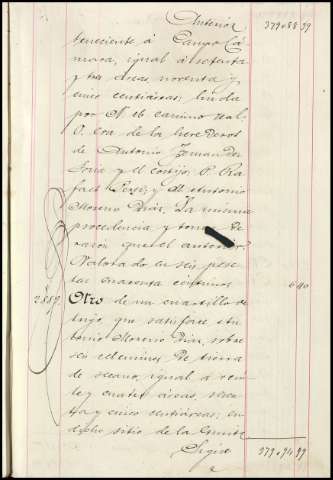 Anterior 379.88.99
teneciente á Campo Cá
mara, igual á setenta
y tres áreas, noventa y
cinco centiáreas; linda
por N. el camino real,
O. con de la herederos
de Antonio Fernandez
Soria y el cortijo, P. Ra
fael y M. Antonio
Moreno Diaz. La misma
procedencia y toma de
razón que el anterior.
Valorado en seis pese
tas cuarenta céntimos 6.40
2.889. Otro de un cuartillo de
trigo, que satisface An
tonio Moreno Diaz, sobre
seis celemines de tierra
de secano, igual á vein
te y cuatro áreas, sesen
ta y cinco centiáreas; en
dicho sitio de la
Sigue 379.94.99